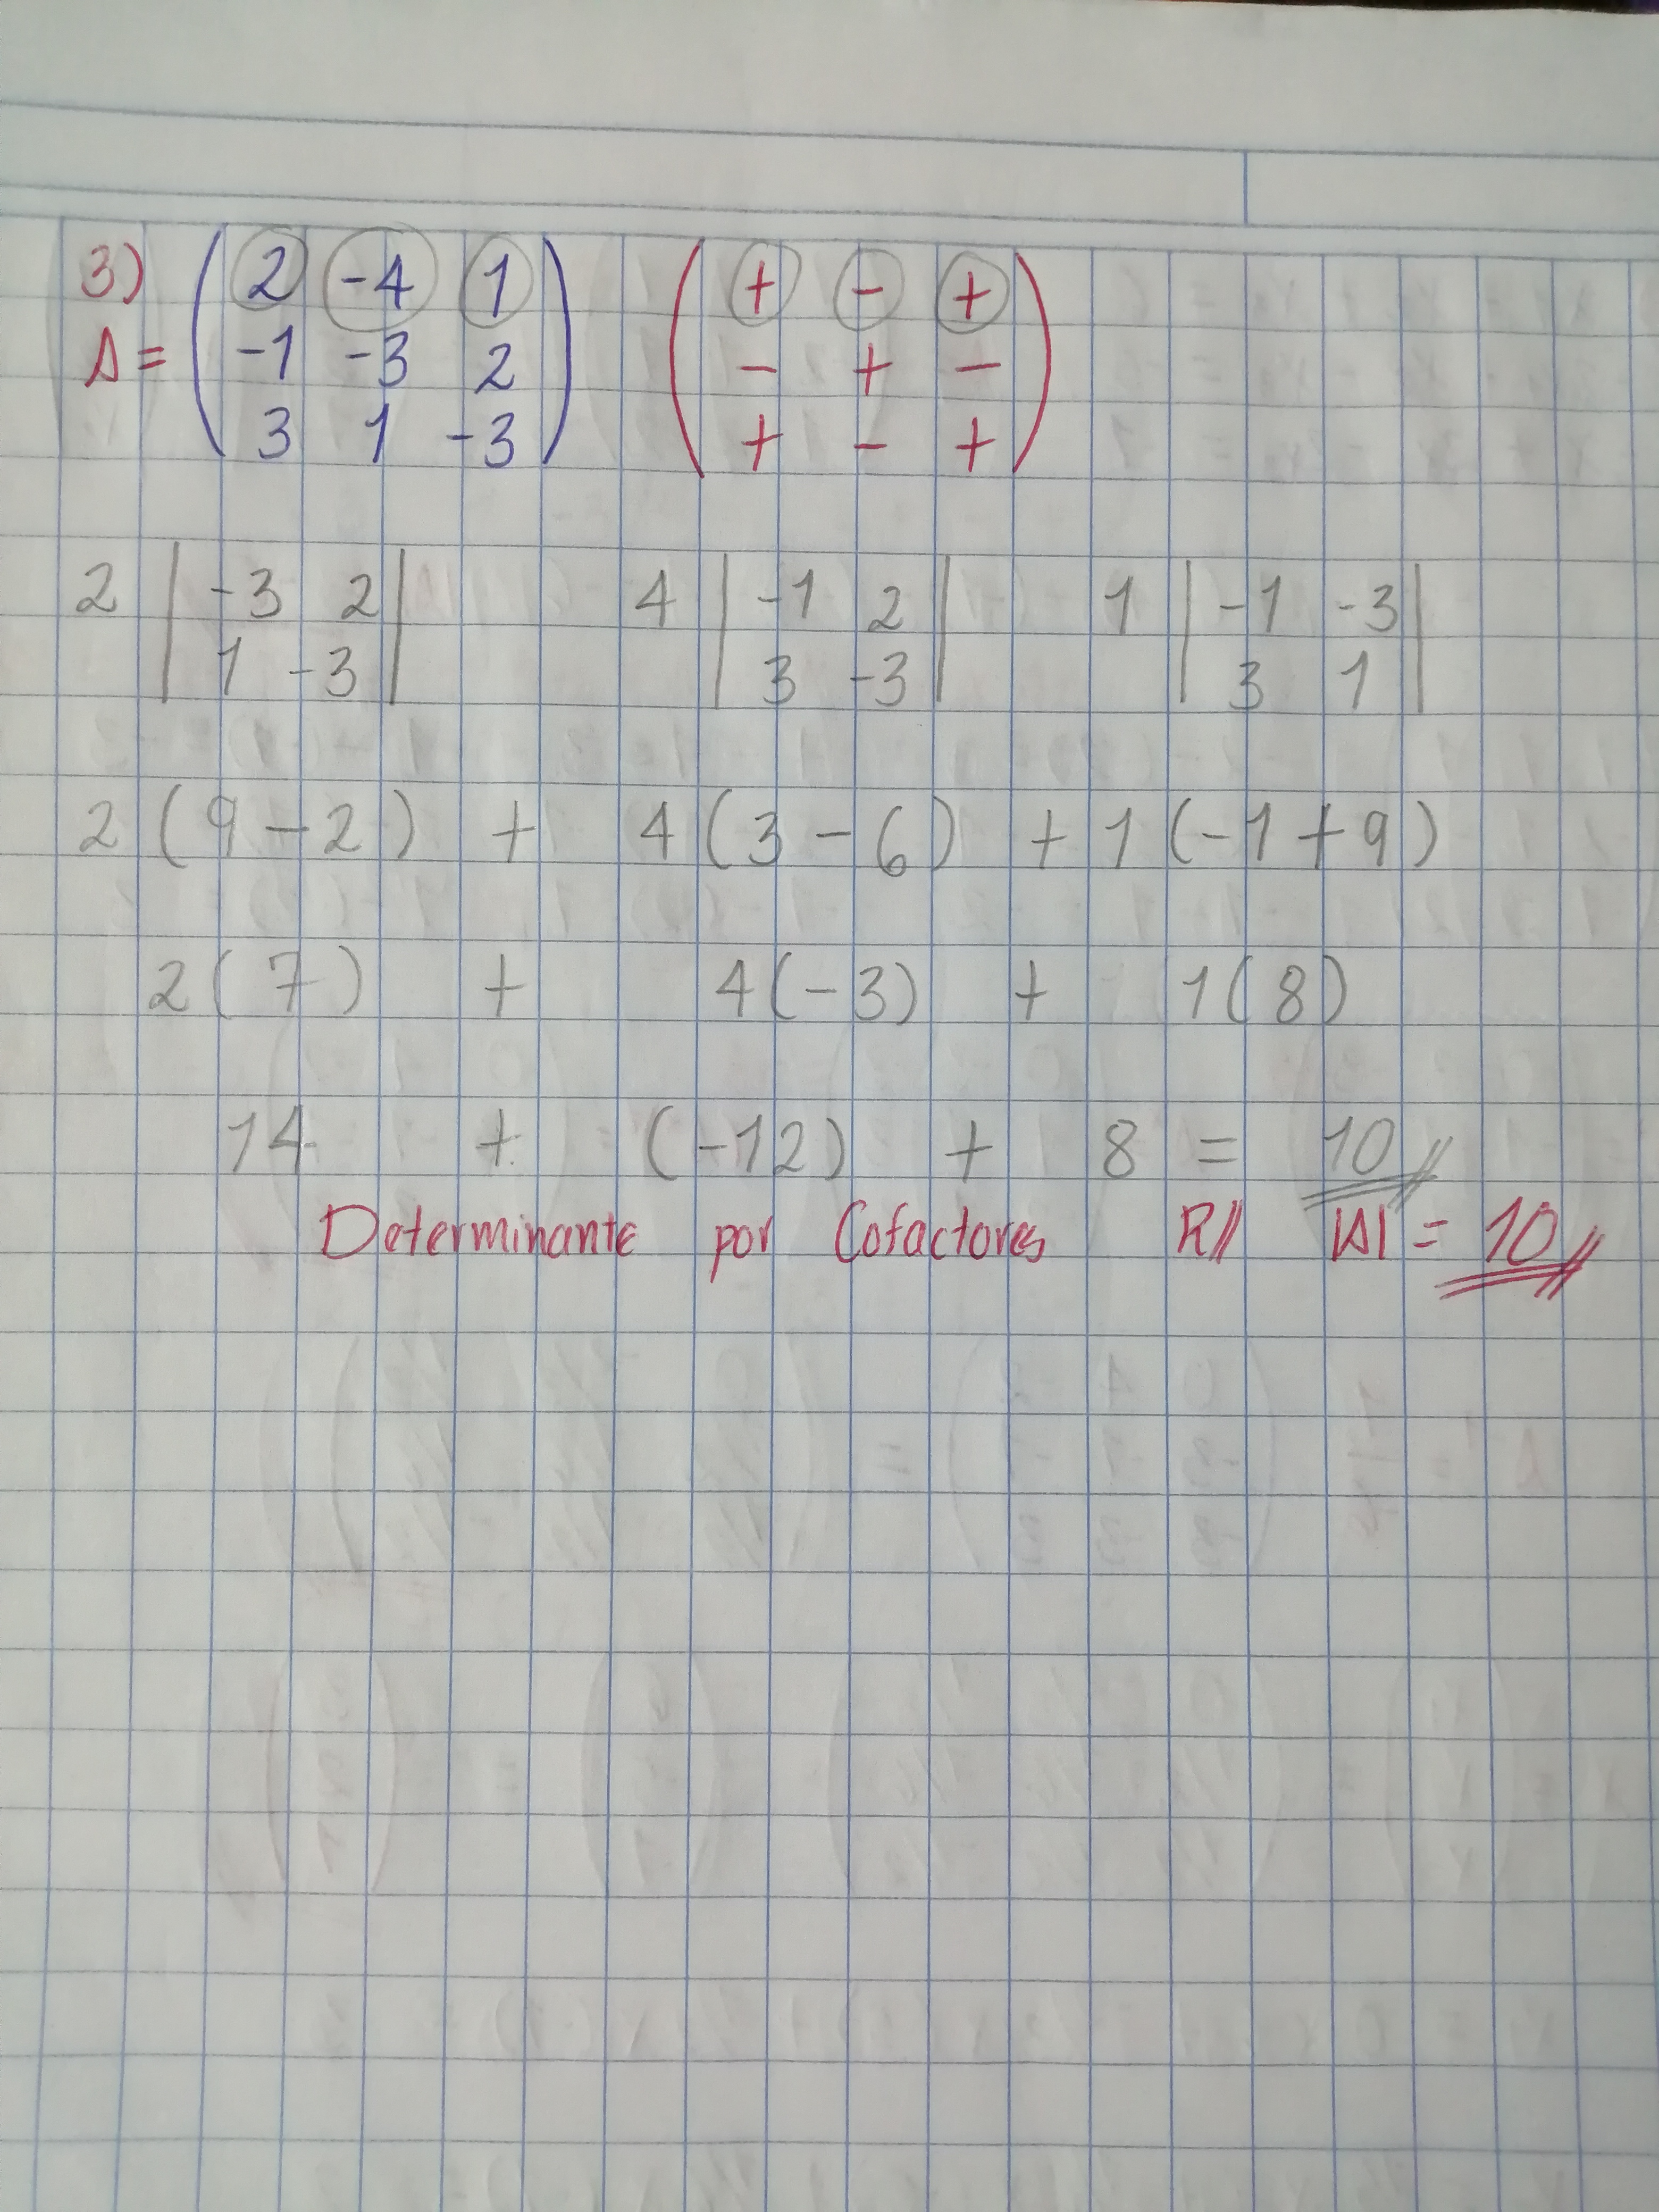 3) ( 2 -4 1 ) ( + - + )
A = ( -1 -3 2 ) ( - + - )
( 3 1 -3 ) ( + - + )
2 | -3 2 | 4 | -1 2 | 1 | -1 -3 |
| 1 -3 | | 3 -3 | | 3 1 |
2 ( 9 - 2 ) + 4 ( 3 - 6 ) + 1 ( -1 + 9 )
2 ( 7 ) + 4 ( -3 ) + 1 ( 8 )
14 + ( -12 ) + 8 = 10//
Determinante por Cofactores R// |A| = 10//